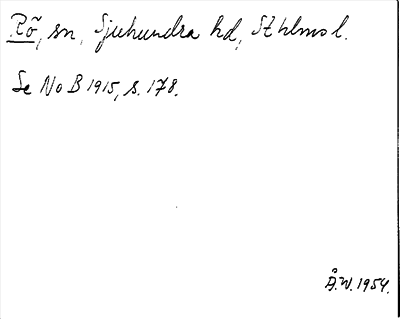 Rö, sn, Sjuhundra hd, Sthlms l.
Se NoB 1915, s. 178.
Å.W. 1954.